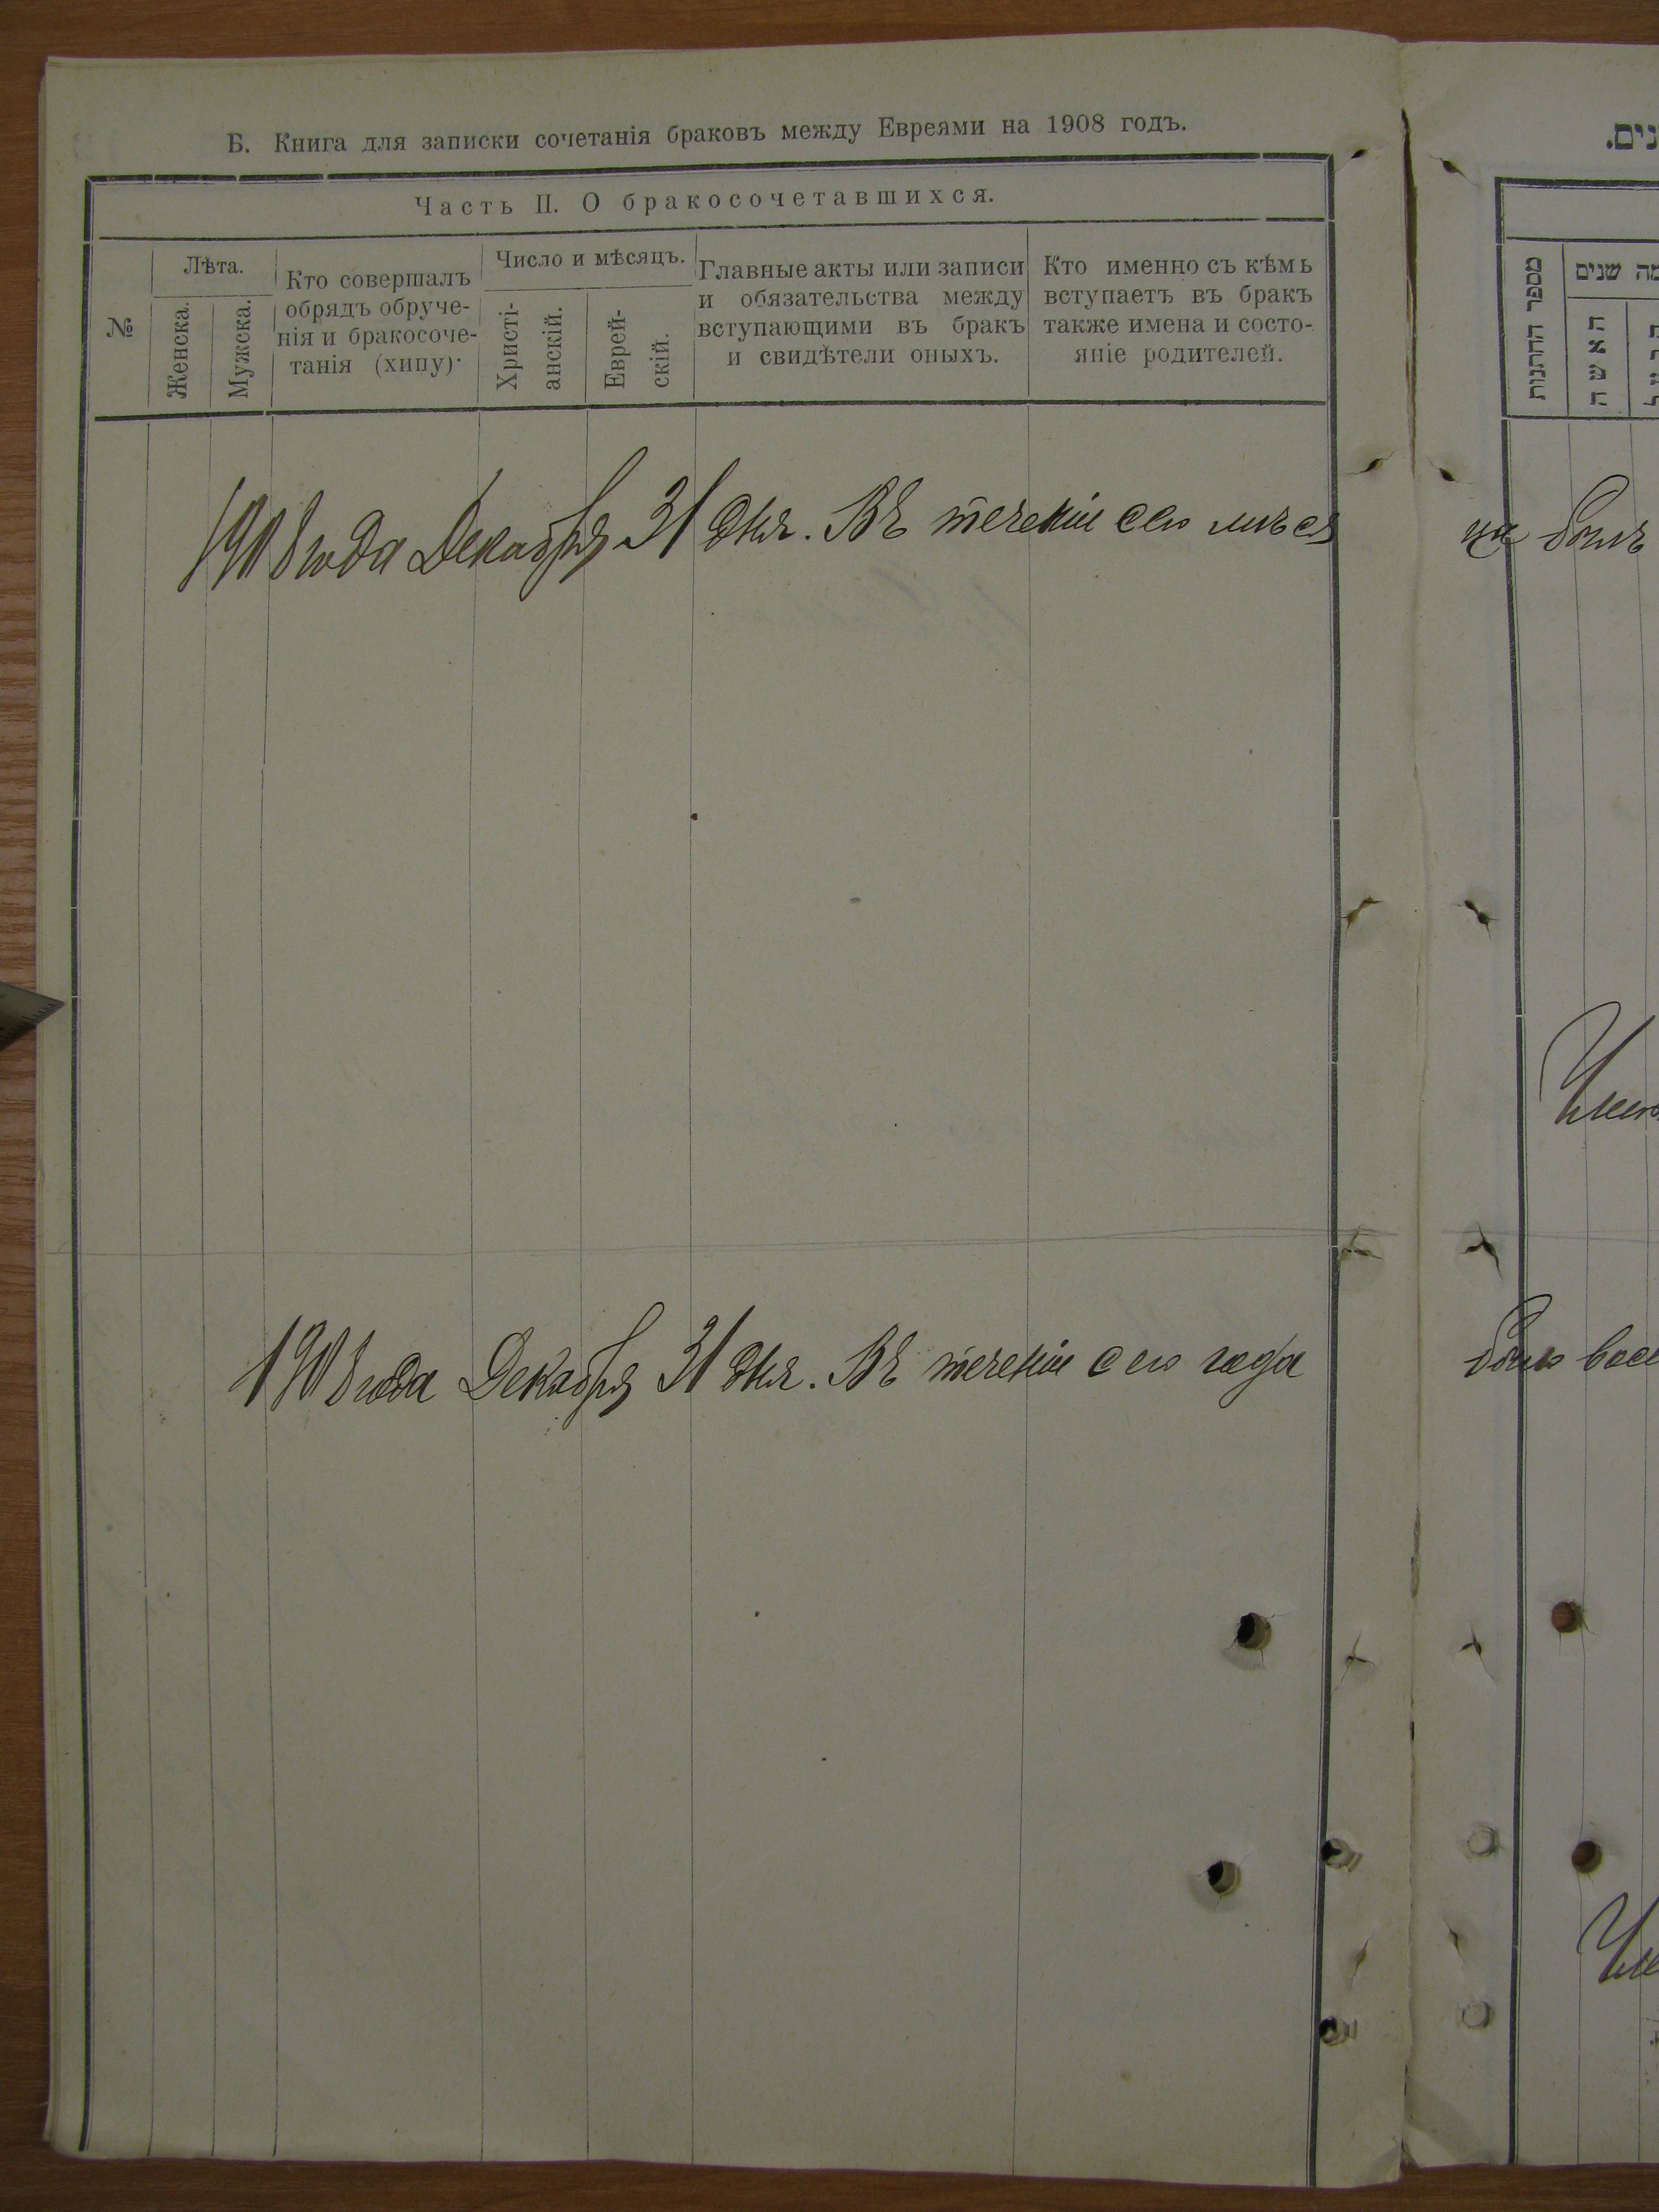 Б. Книга для записки сочетанія браковъ между Евреями на 1908 годъ.
Часть II. О бракосочетавшихся.
№
Лѣта.
Женска.
Мужска.
Кто совершалъ
обрядъ обруче-
нія и бракосоче-
танія (хипу).
Число и мѣсяцъ.
Христі-
анскій.
Еврей-
скій.
Главные акты или записи
и обязательства между
вступающими въ бракъ
и свидѣтели оныхъ.
Кто именно съ кѣмъ
вступаетъ въ бракъ
также имена и состо-
яніе родителей.
1908 года Декабря 31 дня. Въ теченіи сего мѣся
1908 года Декабря 31 дня. Въ теченіи сего года
מספר החתנות
מה שנים
האשה
ца былъ
было